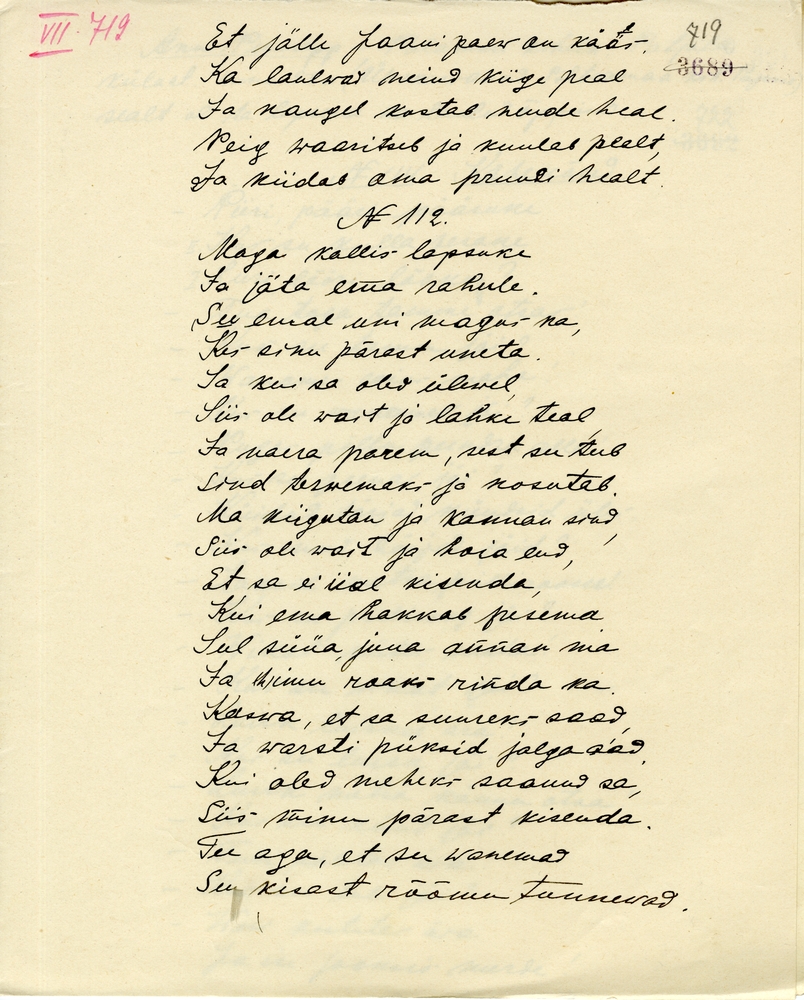 VII 719
719
3689
Et jälle Jaanipaew on kääs.
Ka laulwad neiud kiige peal
Ja kaugel kostab nende heal.
Peig waaritseb ja kuulab pealt,
Ja kiidab oma pruudi healt.
№ 112.
Maga kallis lapsuke
Ja jäta ema rahule.
See emal uni magus ka,
Kes sinu pärast uneta.
Ja kui sa oled ülewel,
Siis ole wait ja lahke teal,
Ja naera parem, sest see teeb
Sind terwemaks ja kosutab.
Ma kiigutan ja kannan sind,
Siis ole wait ja hoia end,
Et sa ei iial kisenda,
Kui ema hakkab pesema
Sul süüa, juua annan ma
Ja imu roaks rinda ka.
Kaswa, et sa suureks saad,
Ja warsti püksid jalga aad,
Kui oled meheks saanud sa,
Siis minu pärast kisenda.
Tee aga, et su wanemad
Su kisast rõõmu tunnewad.